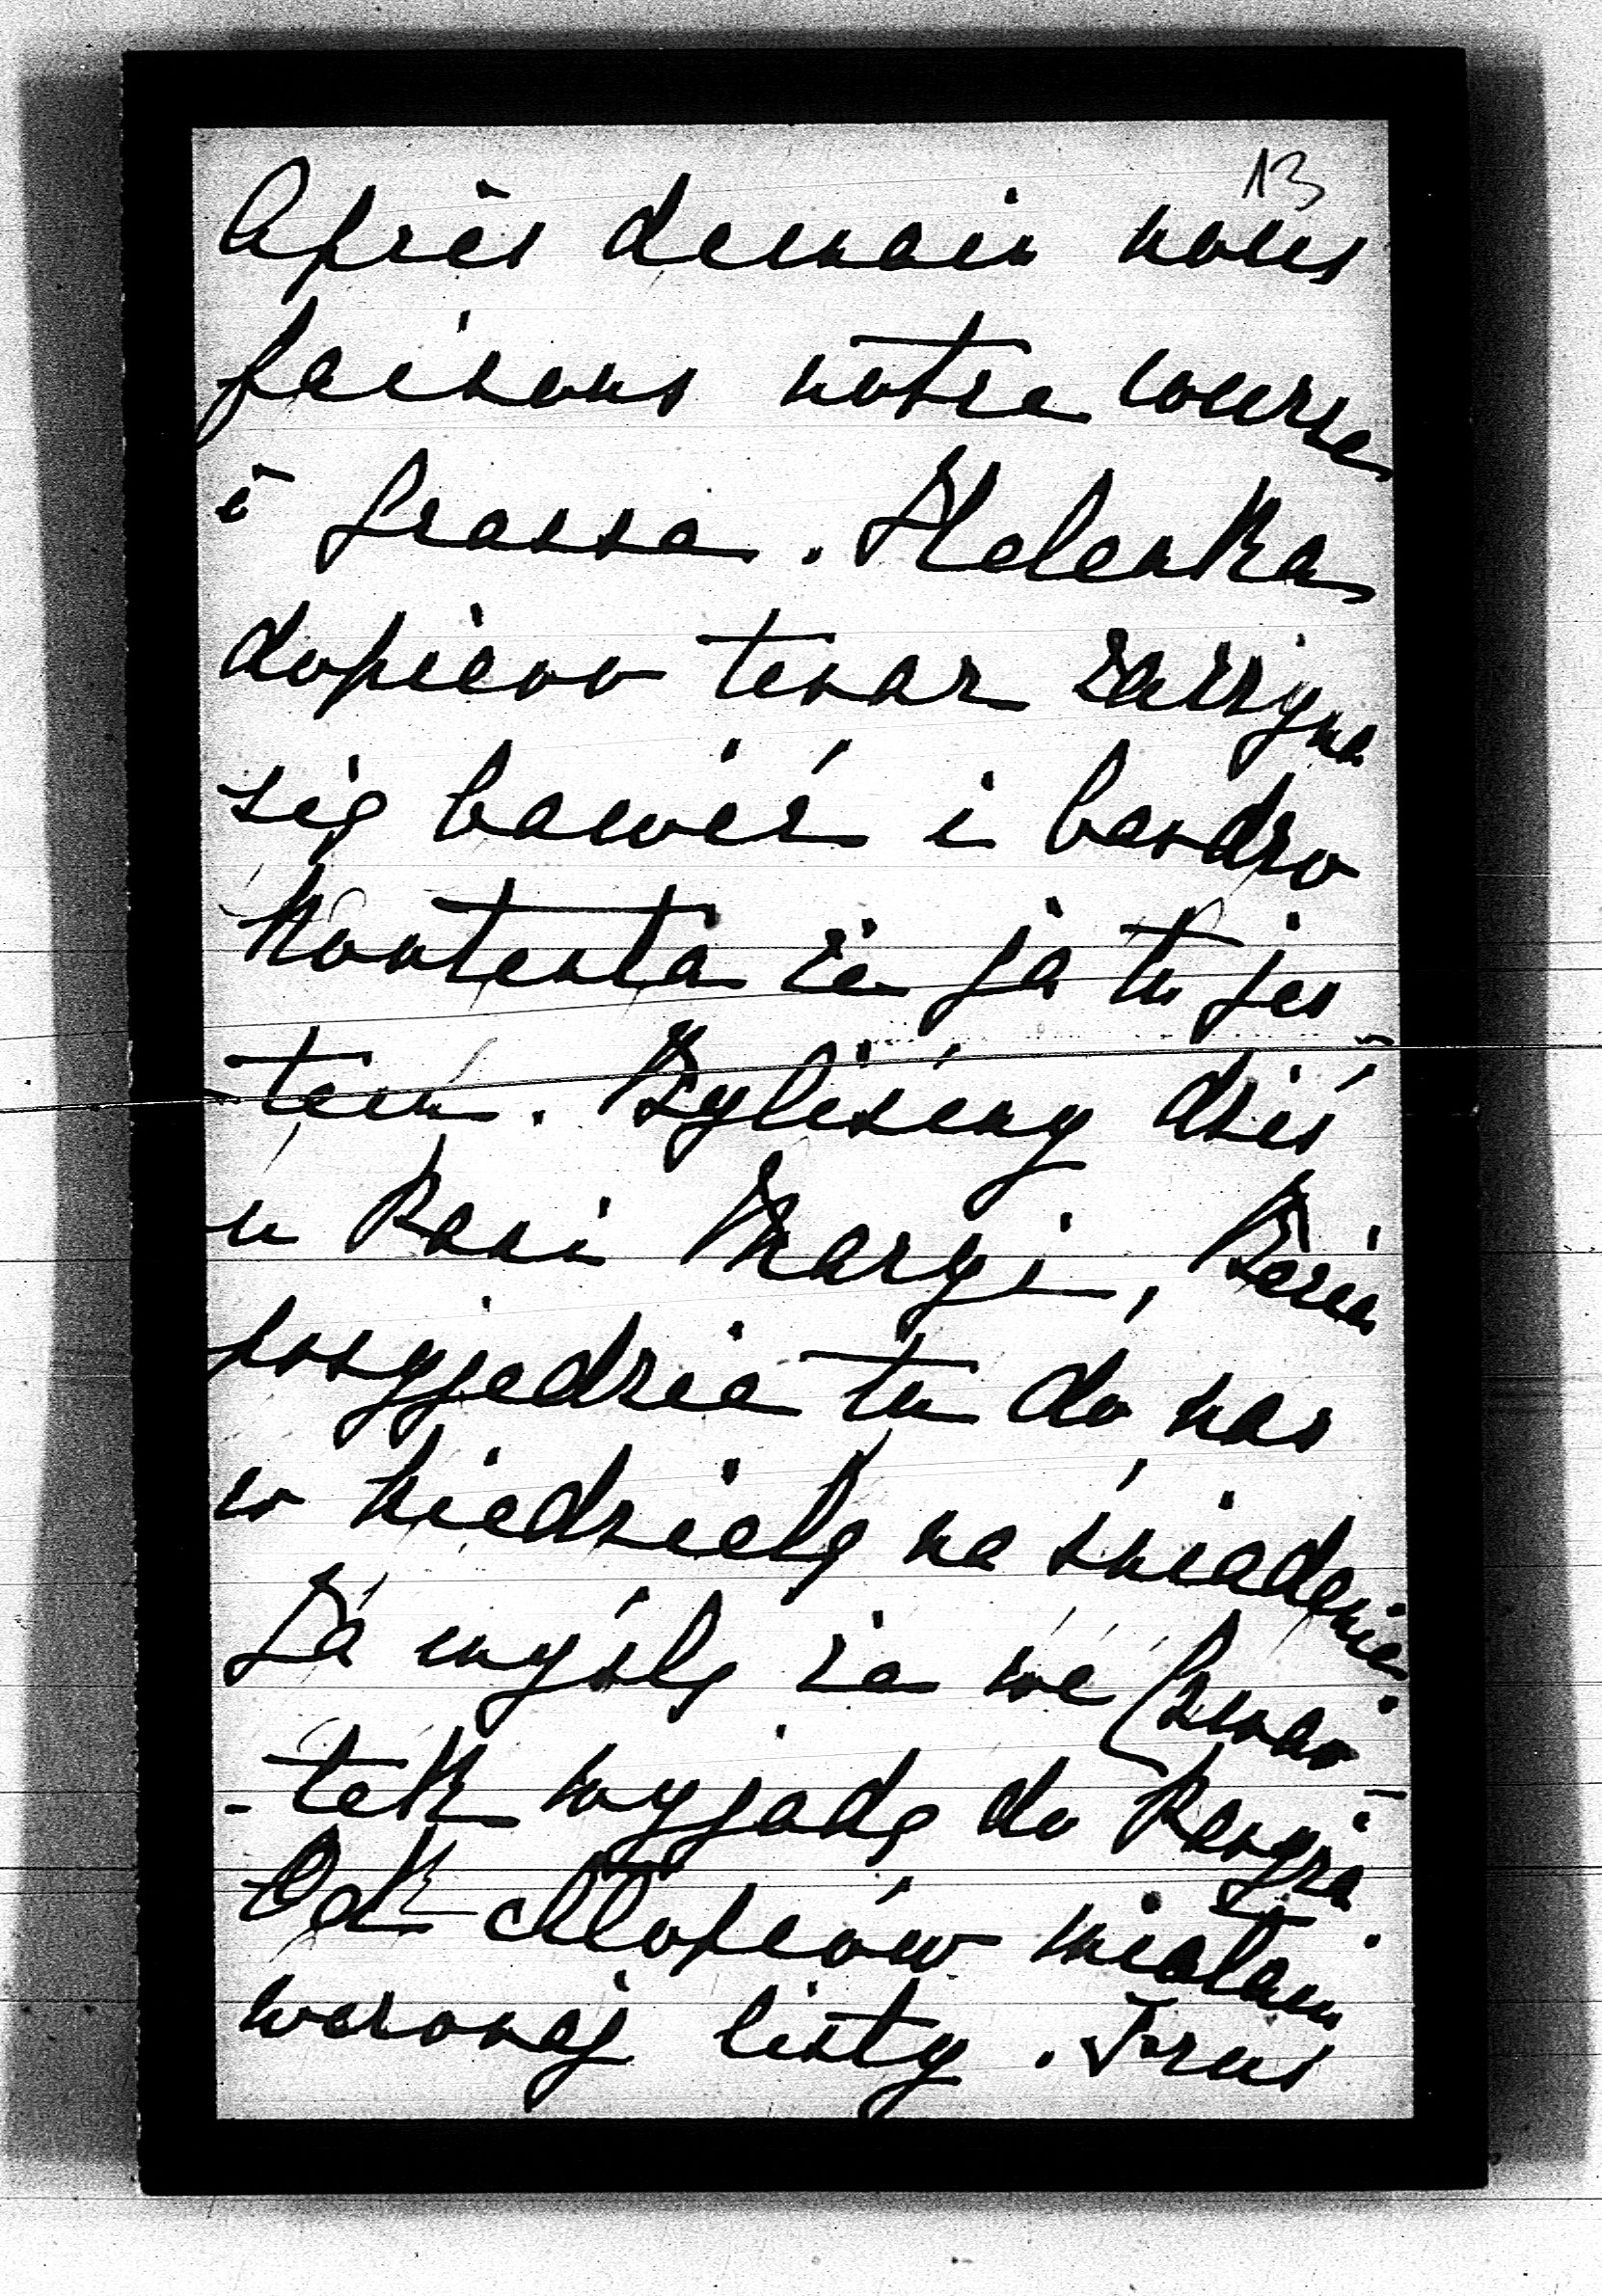 13
Après demain nous
faisons notre course
à Grasse. Helenka
dopiero teraz zaczyna
się bawić i bardzo
kontenta że ja tu jes
tem. Byliśmy dziś
u Pani Margi,
przyjedzie tu do nas
w niedzielę na śniadanie.
Ja myślę że we czwar-
-tek wyjadę do Paryża.
Od chłopców miałam
wczoraj listy.